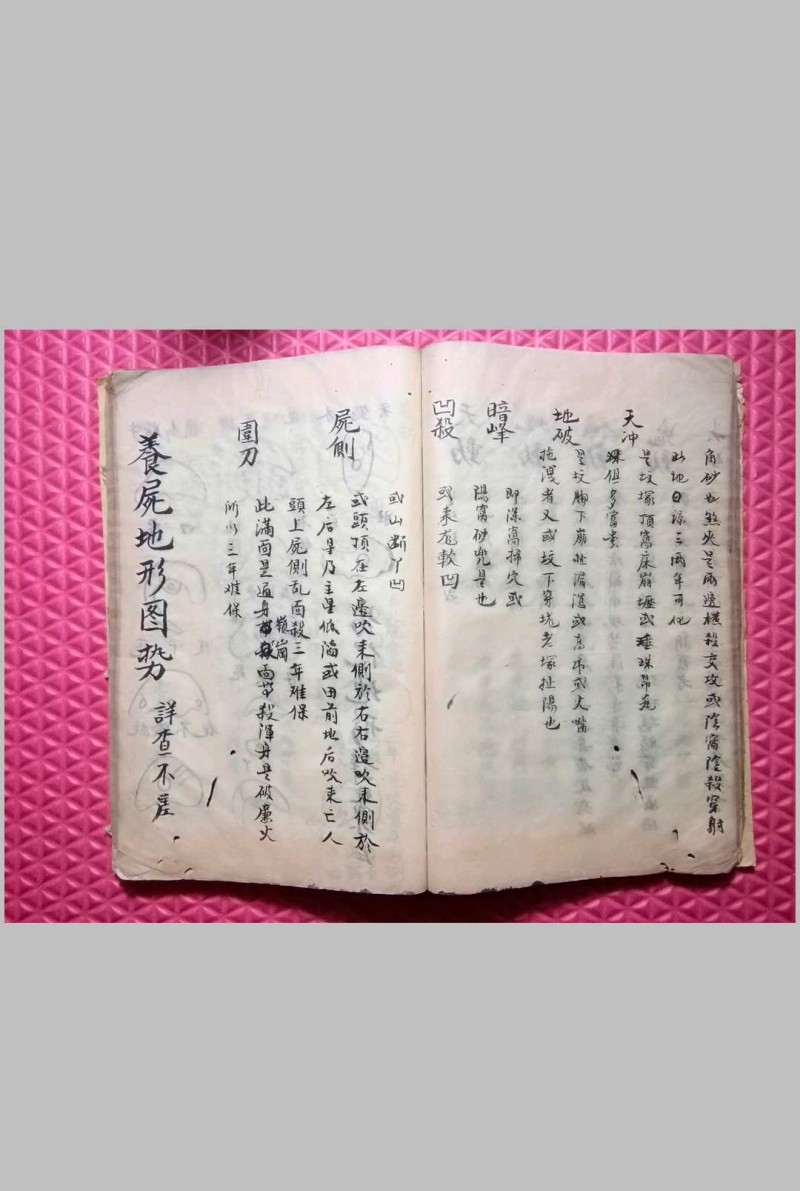 角砂也煞火是兩邊橫殺交攻或陰窩陰殺穿射
此地日琼三両年可化
天冲
是坟塚頂窩床崩堰或垂珠吊
珠俱多富贵
地破
是坟脚下崩漏洩或高吊或大嘴
拖洩者又或坟下穿坑老塚扯陽也
暗峰
即深窩掃穴或
陽窩砂兜是也
凹殺
或来龙軟凹
或山断丫凹
屍側
或頭頂在左邊吹来側於右右邊吹来側於
左后是乃主星低陷或田前地后吹来亡人
頭上屍側乱面殺三年难保
圍刀
此滿面是通身嶺崗面带殺渾身是破廉火
所以三年难保
養屍地形图势 詳查不差